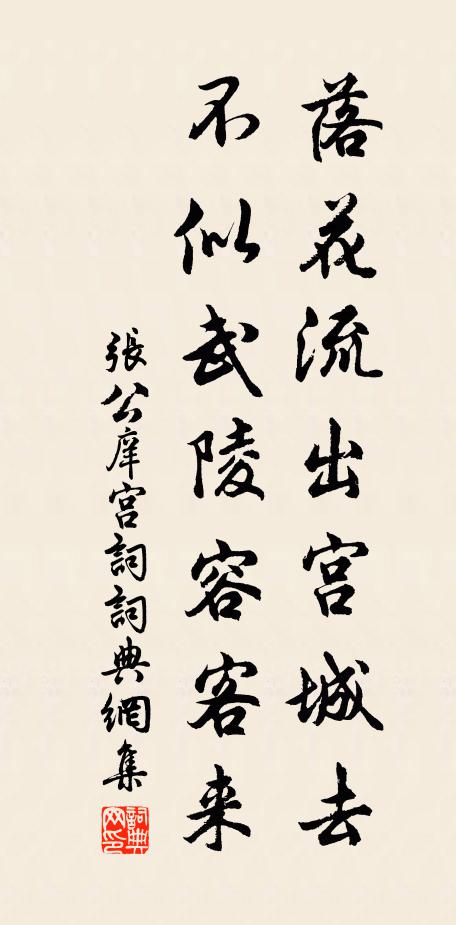 落花流出宫城去
不似武陵容客来
張公庠宫詞詞典網集
詞典
网印